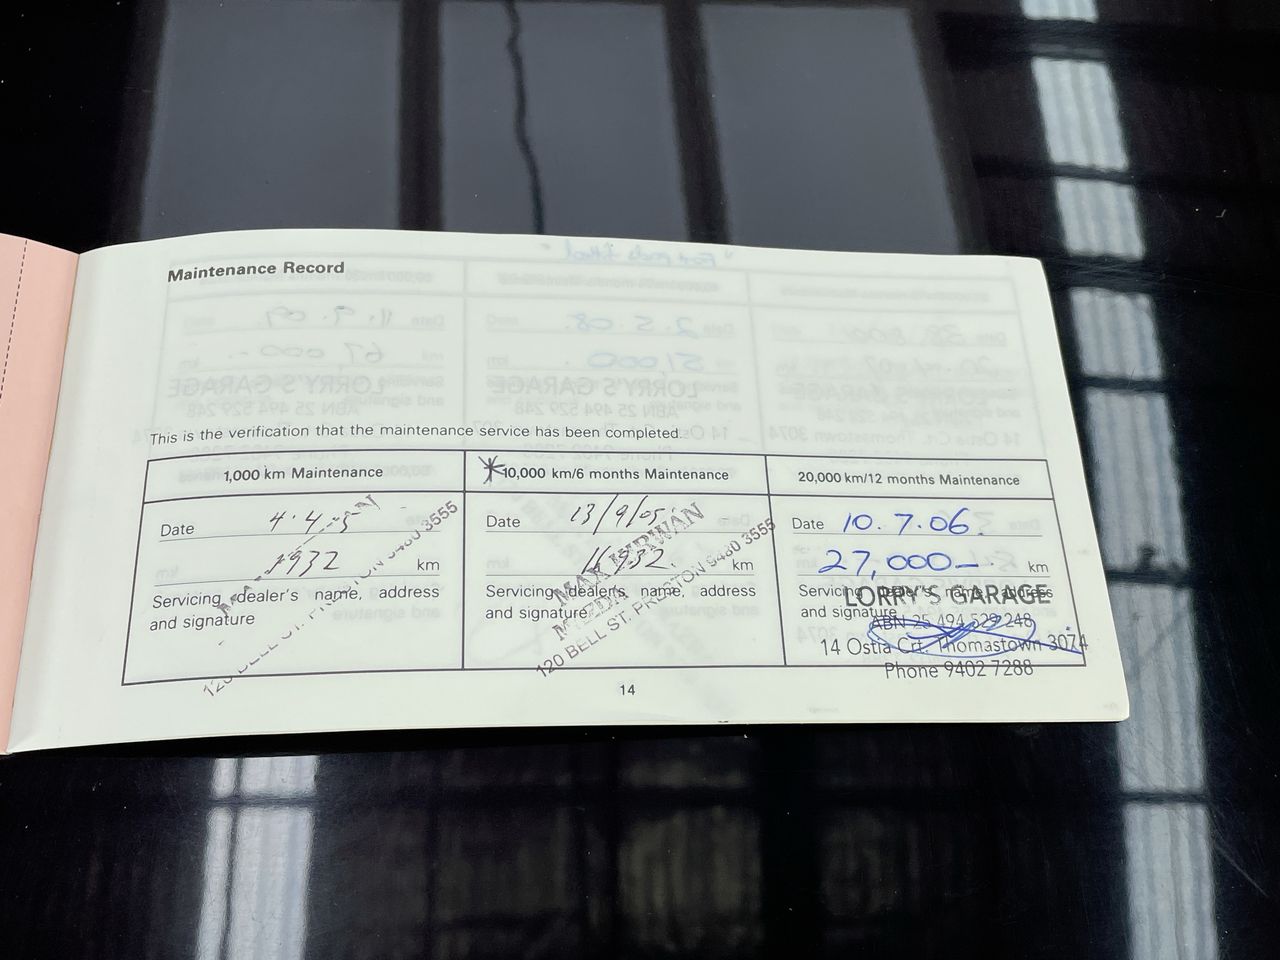 Maintenance Record
This is the verification that the maintenance service has been completed.
1,000 km Maintenance
Date 4.4.5
km
Servicing dealer's name, address
and signature
120 BELL ST. PRESTON 9480 3555
*10,000 km/6 months Maintenance
Date 13/9/05
km
Servicing dealer's name, address
and signature
MAX KIRWAN
MAZDA
120 BELL ST. PRESTON 9480 3555
20,000 km/12 months Maintenance
Date 10.7.06.
27,000—. km
Servicing dealer's name, address
and signature
LORRY'S GARAGE
ABN 25 494 529 248
14 Ostia Crt. Thomastown 3074
Phone 9402 7288
14